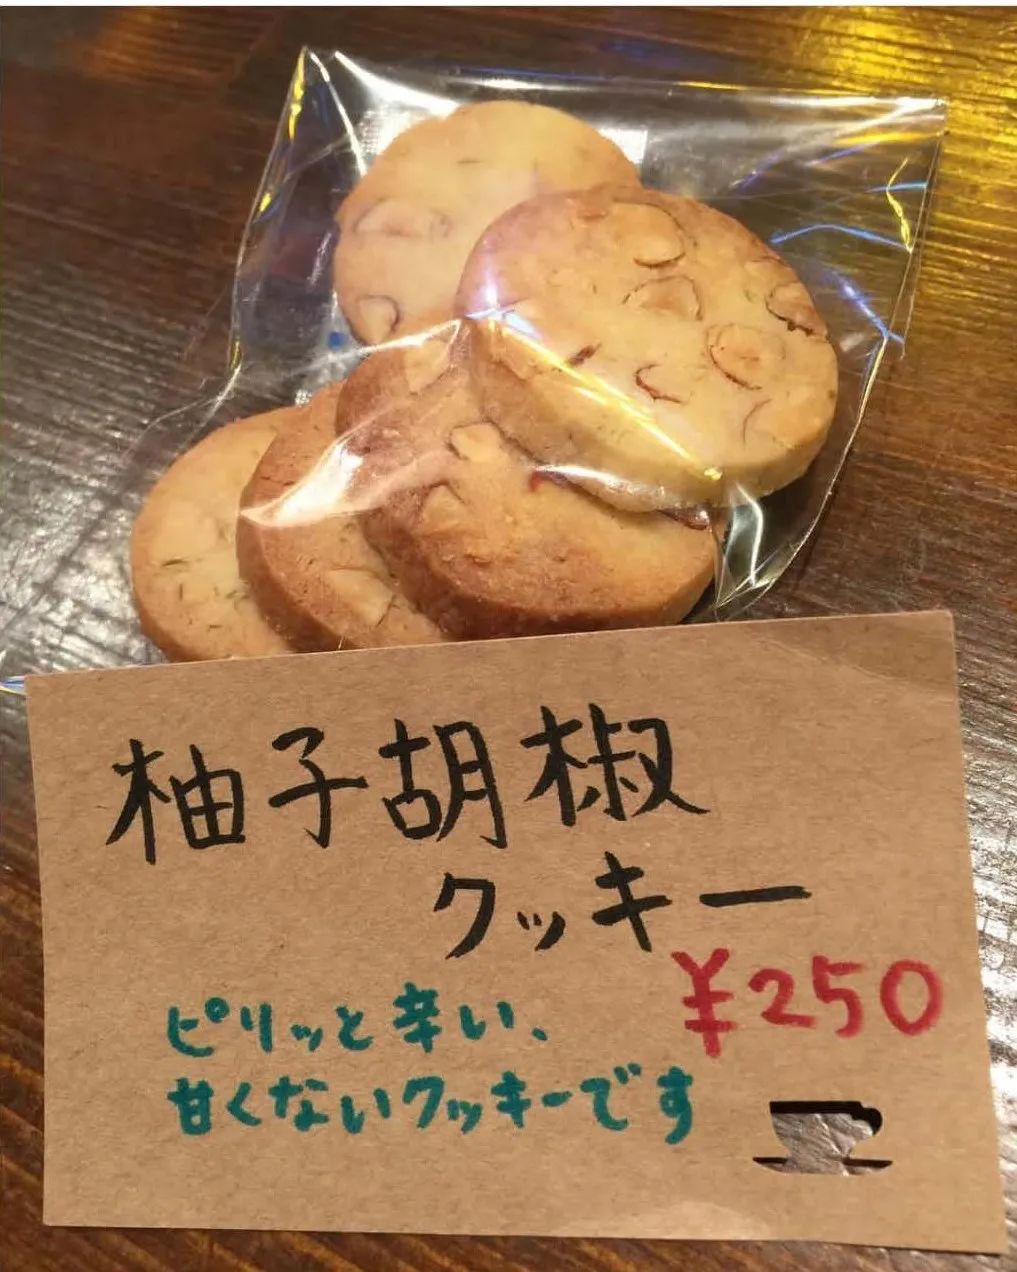 柚子胡椒
クッキー
¥250
ピリッと辛い、
甘くないクッキーです